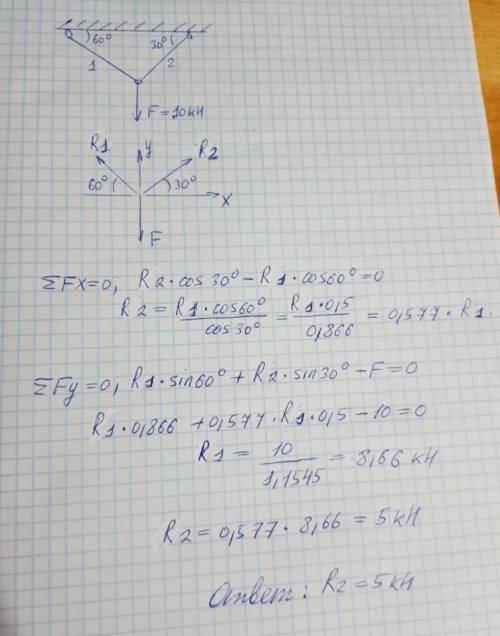 60° 30°
1 2
F = 10кН
R1 y R2
60° 30°
x
F
ΣFx=0, R2·cos30° − R1·cos60° = 0
R2 = R1·cos60° / cos30° = R1·0,5 / 0,866 = 0,577·R1.
ΣFy=0, R1·sin60° + R2·sin30° − F = 0
R1·0,866 + 0,577·R1·0,5 − 10 = 0
R1 = 10 / 1,1545 = 8,66 кН
R2 = 0,577·8,66 = 5 кН
Ответ: R2 = 5 кН